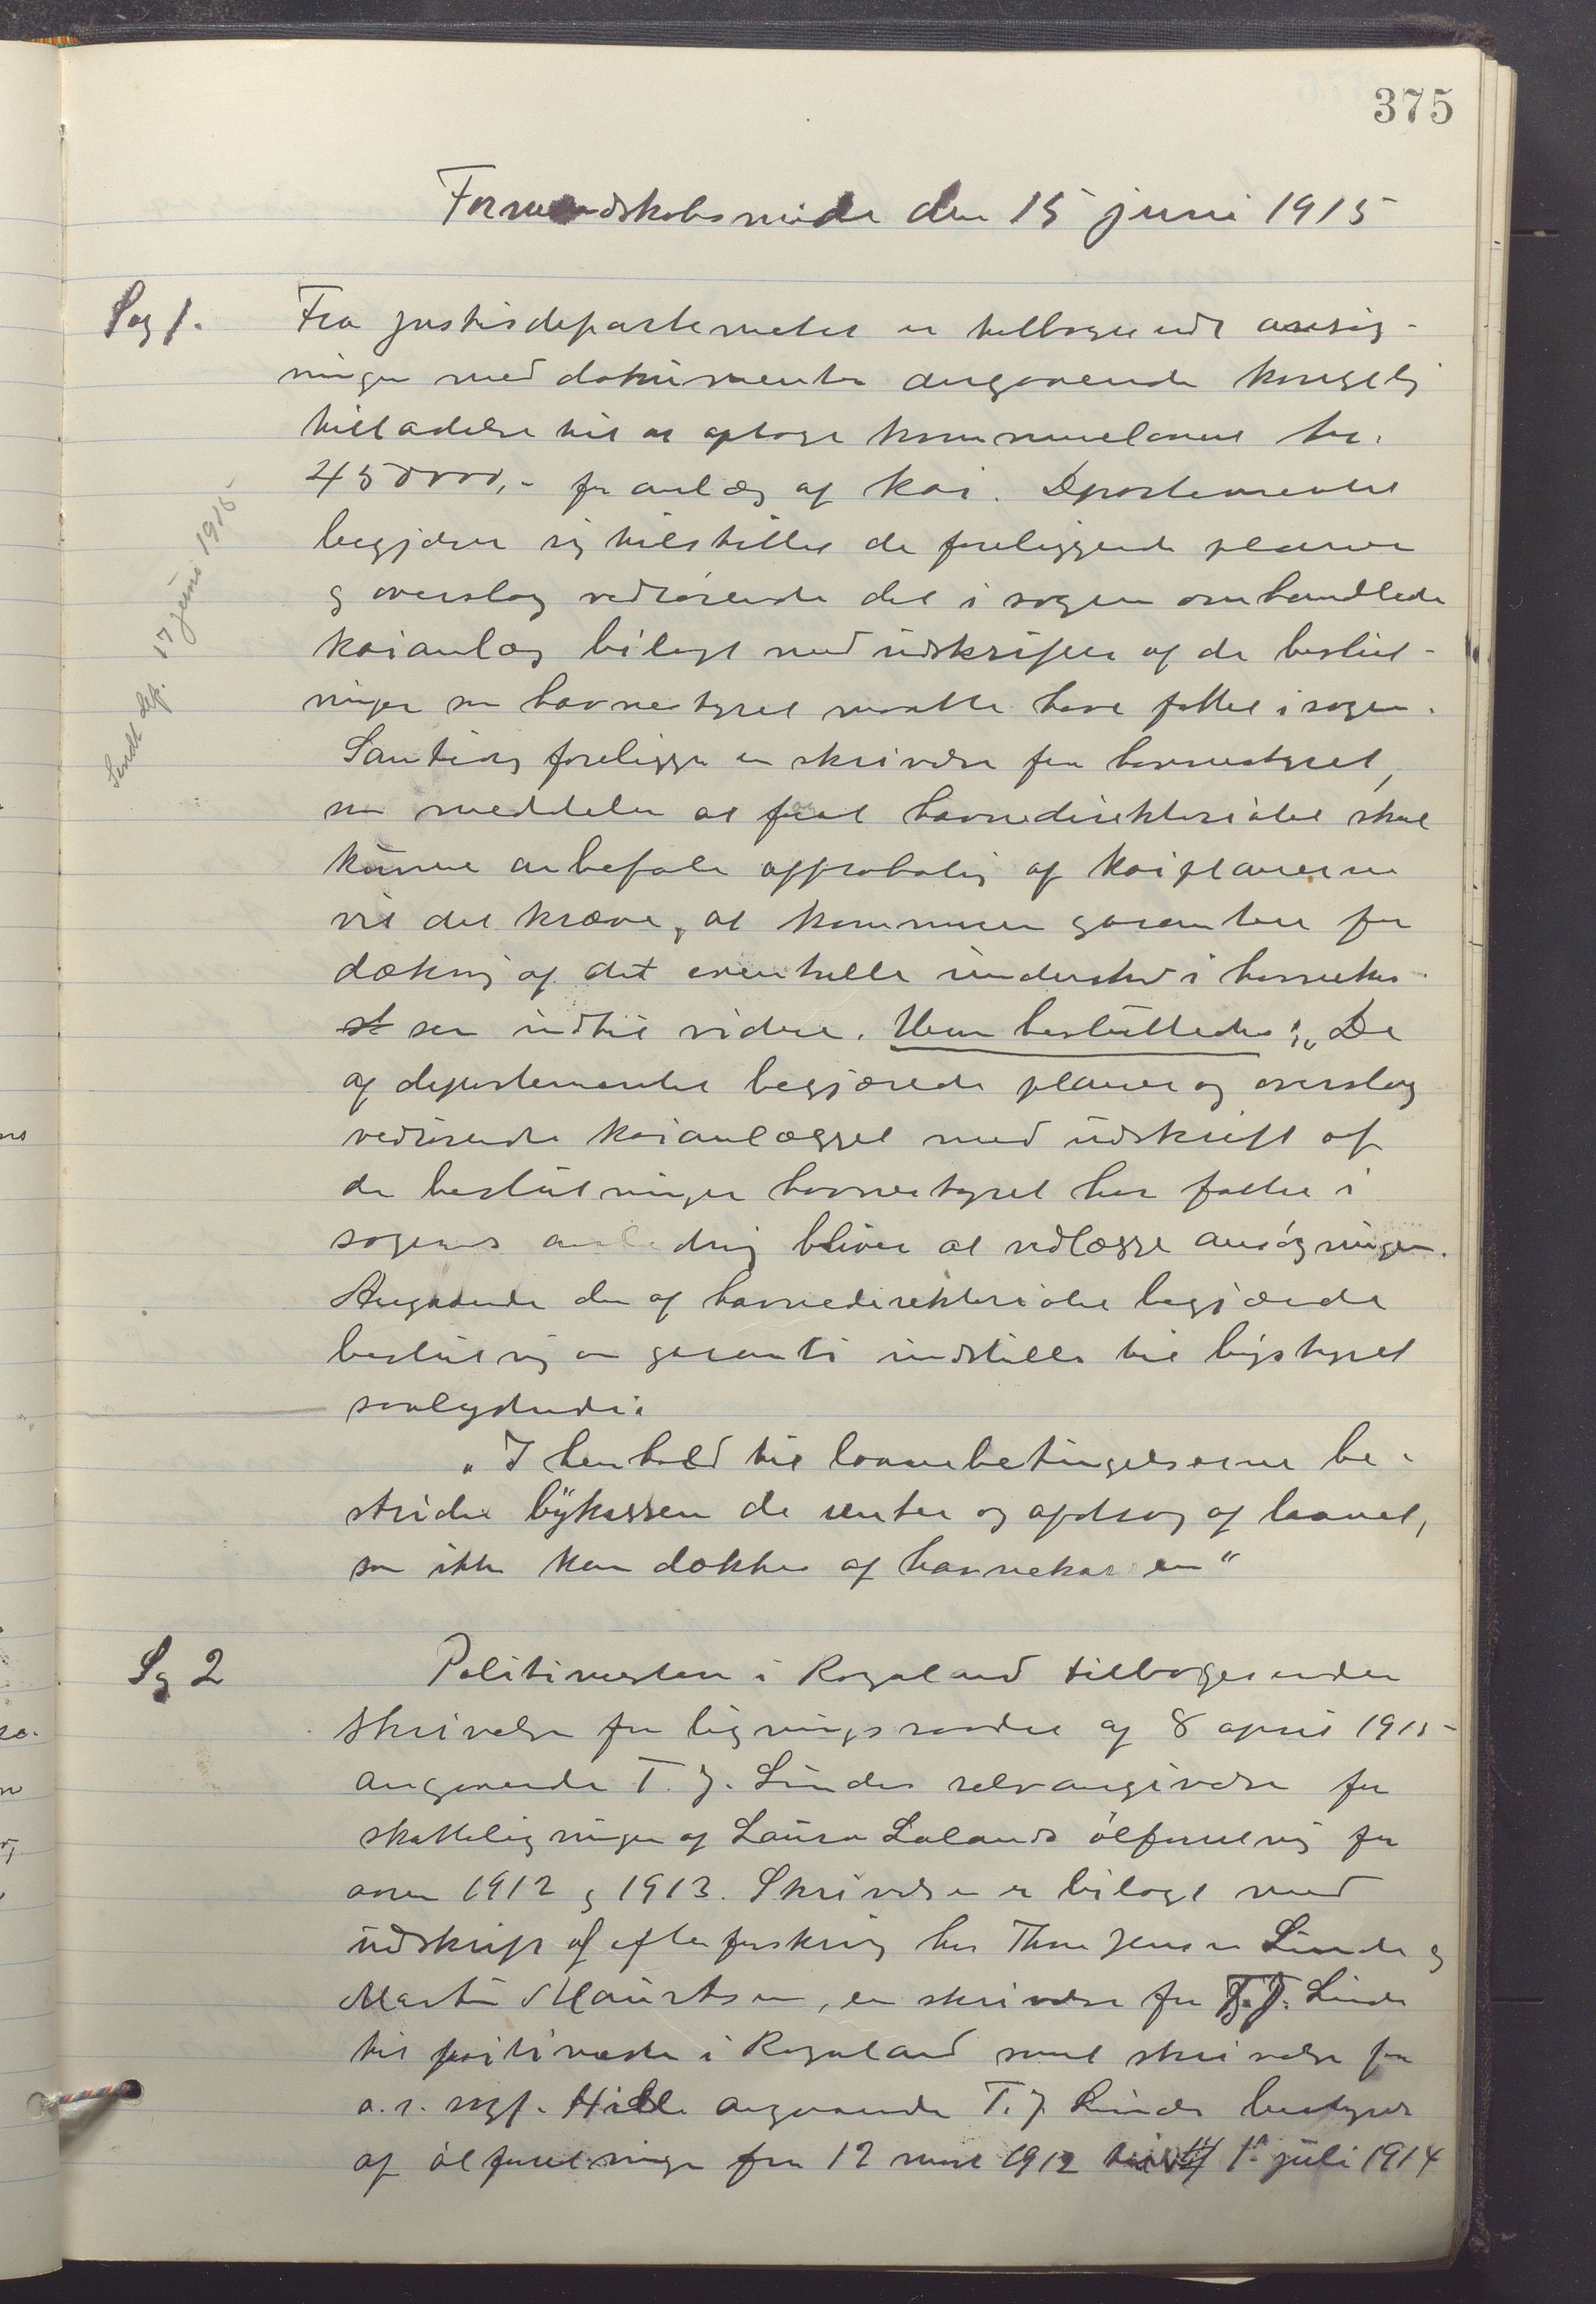 375
Formandskabsmøde den 15 juni 1915
Sag 1.
Fra justisdepartementet er tilbagesendt ansøg-
ningen med dokumenter angaaende kongelig
tilladelse til at optage kommunelaanet kr.
450000,- for anlæg af kai. Departementet
begjærer sig tilstillet de foreliggende planer
og overslag vedrørende det i sagen omhandlede
kaianlæg bilagt med udskrifter af de beslut-
ninger som havnestyret maatte have fattet i sagen.
Sendt dep. 17 juni 1915
Samtidig foreligger en skrivelse fra havnestyret,
som meddeler at forat havnedirektoriatet skal
kunne anbefale approbation af kaiplanerne
vil det kræve, at kommunen garanterer for
dækning af det eventuelle underskud i havnekas-
sen indtil videre. Man besluttedes: „De
af departementet begjærede planer og overslag
vedrørende kaianlægget med udskrift af
de beslutninger havnestyret har fattet i
sagens anledning bliver at vedlægge ansøgningen.
Angaaende den af havnedirektoriatet begjærede
beslutning om garanti indstilles til bystyret
saalydende:
„I henhold til laanebetingelserne be-
strider bykassen de renter og afdrag af laanet,
som ikke kan dækkes af havnekassen“
Sag 2
Politimesteren i Rogaland tilbagesender
skrivelse fra ligningsraadet af 8 april 1915
angaaende T. J. Lindes selvangivelse for
skatteligningen af Laura Lalands ølforretning for
aaren 1912 og 1913. Skrivelsen er bilagt med
udskrift af efterforskning hos Thom Jensen Linde og
Martin Mauritsen, en skrivelse fra T. J. Linde
til politimester i Rogaland samt skrivelse fra
o.r. sagf. Hille angaaende T. J. Lindes bestyrelse
af ølforretningen fra 12 mai 1912 til 1ste juli 1914